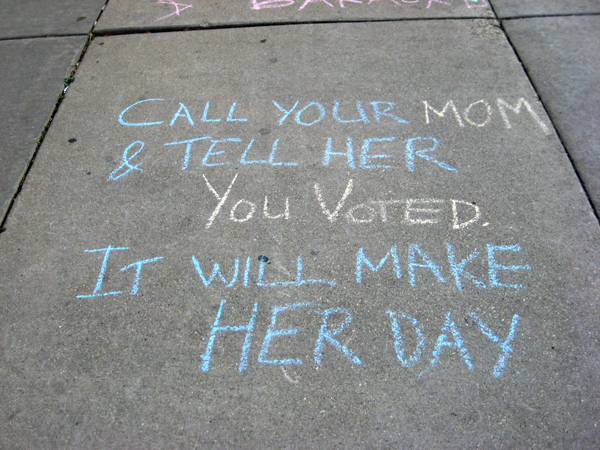 BARACK
CALL YOUR MOM
& TELL HER
YOU VOTED.
IT WILL MAKE
HER DAY